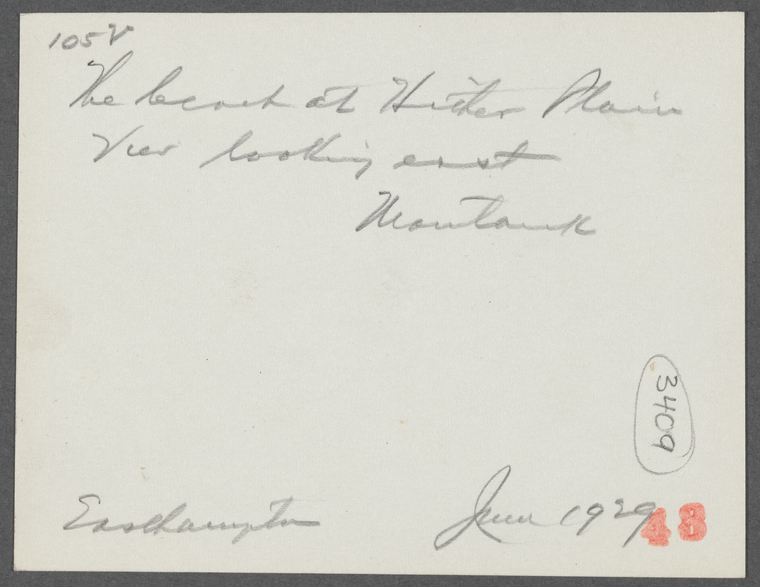 105V
The beach at Hither Plain
View looking east
Montauk
3409
Easthampton June 1929 48